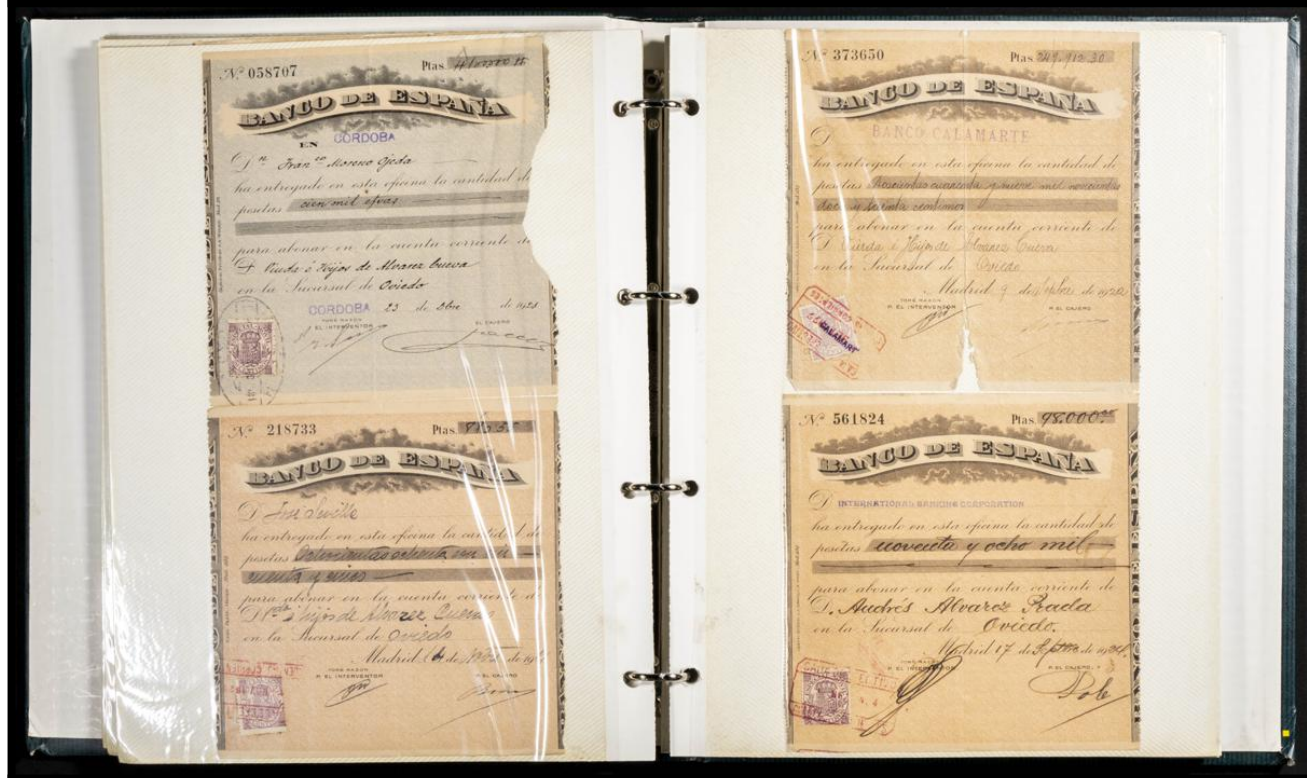 Nº 058707 Ptas.
BANCO DE ESPAÑA
EN CORDOBA
Dⁿ Franᶜᵒ Moreno Ojeda
ha entregado en esta oficina la cantidad de
pesetas cien mil
para abonar en la cuenta corriente de
D Viuda é Hijos de Alvarez Cueva
en la Sucursal de Oviedo
CORDOBA 23 de de
TOMÉ RAZÓN
EL INTERVENTOR
EL CAJERO
Nº 218733 Ptas.
BANCO DE ESPAÑA
D. José
ha entregado en esta oficina la cantidad de
pesetas
para abonar en la cuenta corriente de
D Vᵈᵃ é hijos de Alvarez Cueva
en la Sucursal de Oviedo
Madrid de de
TOMÉ RAZÓN
P. EL INTERVENTOR
P. EL CAJERO
Nº 373650 Ptas. 249.912.30
BANCO DE ESPAÑA
D. BANCO CALAMARTE
ha entregado en esta oficina la cantidad de
pesetas Doscientas cuarenta y nueve mil novecientas
doce y céntimos
para abonar en la cuenta corriente de
D. Viuda é Hijos de Alvarez Cueva
en la Sucursal de Oviedo
Madrid 9 de de
TOMÉ RAZÓN
P. EL INTERVENTOR
P. EL CAJERO
CALAMART
Nº 561824 Ptas. 98.000
BANCO DE ESPAÑA
D. INTERNATIONAL BANKING CORPORATION
ha entregado en esta oficina la cantidad de
pesetas noventa y ocho mil
para abonar en la cuenta corriente de
D. Andrés Alvarez Prada
en la Sucursal de Oviedo.
Madrid 17 de de
TOMÉ RAZÓN
P. EL INTERVENTOR
P. EL CAJERO,